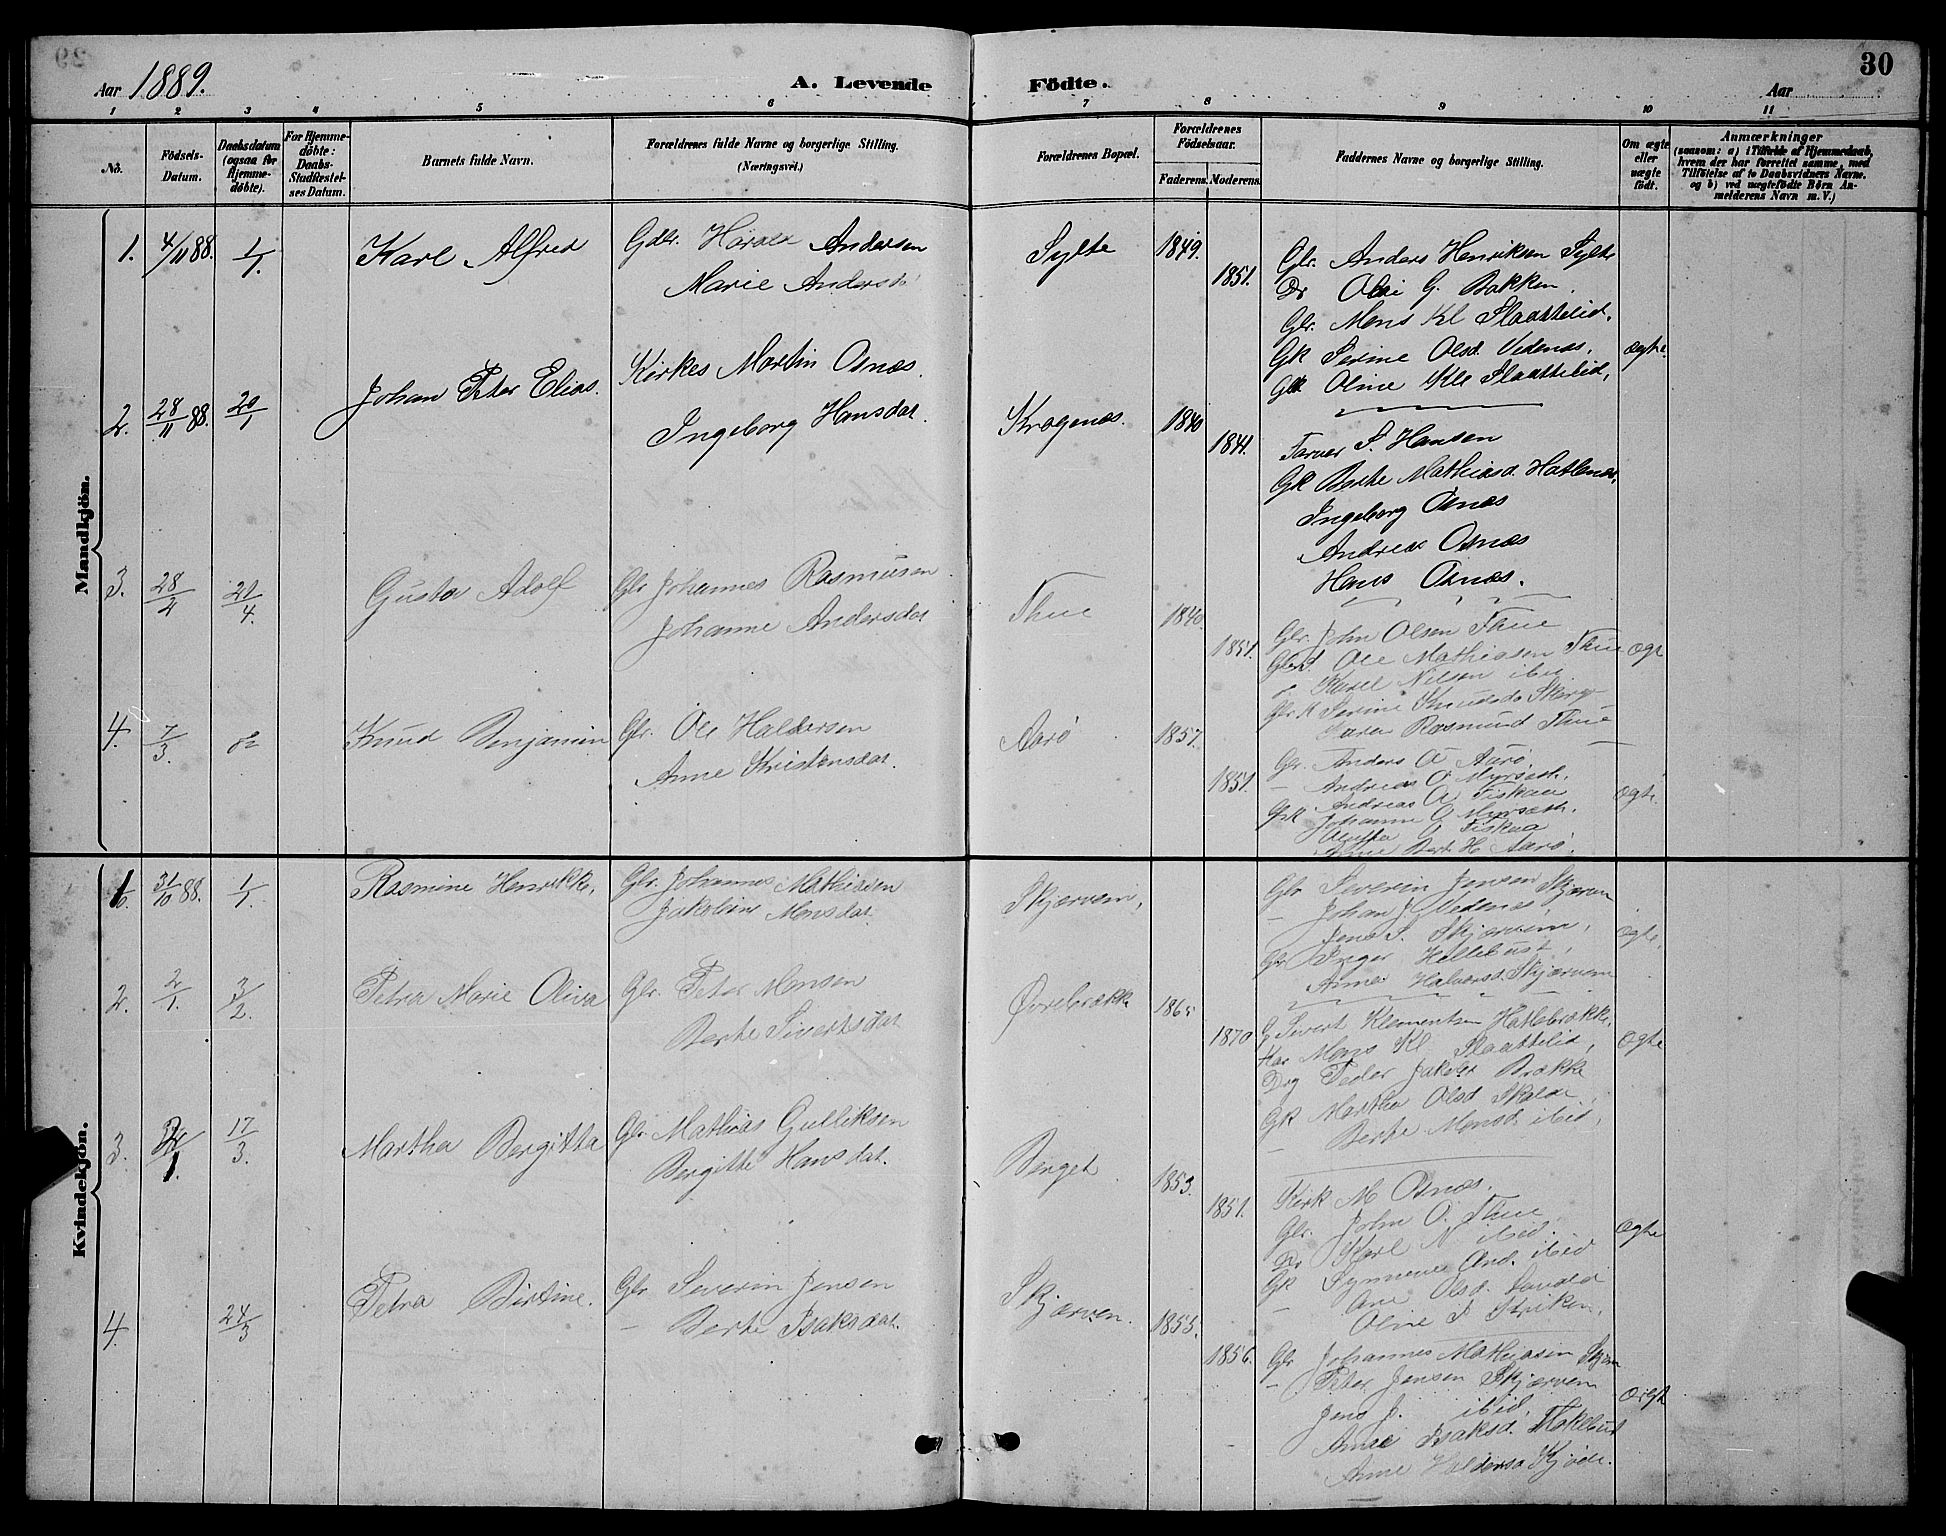 30
Aar 1889.
A. Levende Födte.
Aar
1 2 3 4 5 6 7 8 9 10 11
No.
Födsels-Datum.
Daabsdatum (ogsaa for Hjemme-döbte).
For Hjemme-döbte: Daabs-Stadfæstel-ses Datum.
Barnets fulde Navn.
Forældrenes fulde Navne og borgerlige Stilling.
(Næringsvei.)
Forældrenes Bopæl.
Forældrenes Födselsaar.
Faderens. Moderens.
Faddernes Navne og borgerlige Stilling.
Om ægte eller uægte födt.
Anmærkninger
(saasom: a) i Tilfælde af Hjemmedaab, hvem der har forrettet samme, med Tilföielse af to Daabsvidners Navne. og b) ved uægtefödte Börn An-melderens Navn m. V.)
Mandkjön.
1. 4/11 88. 1/1. Karl Alfred
Gdbr. Harald Andersen
Marie Andersd
Sylte 1849. 1851.
Gbr. Anders Henriksen Sylte
Dr G. Bakken.
Gbr. Mons Kl Slaattelid.
Gk Serine Olsd. Vedenæs.
Gk Oline Kle Slaattelid,
ægte.
2. 28/11 88. 20/1 Johan Peter Elias.
Kirkes Martin Osnæs.
Ingeborg Hansdat.
Kragenæs. 1840 1841.
Farver S. Hansen
Gk Berte Mathiasd. Hatlenæs,
Ingeborg Osnæs
Andreas Osnæs
Hans Osnæs.
3. 28/4 21/4. Gustav Adolf
Gbr Johannes Rasmusen
Johanne Andersdat
Thue 1840. 1851.
Gbr. John Olsen Thue
Ole Mathiasen Thue
Karl Nilsen ibid
Serine Knudsd
Karen Rasmusd Thue
ægt
4. 7/3. do Knud Benjamin
Gbr. Ole Haldorsen
Anne Kristensdat.
Aarø 1857. 1851.
Gbr. Anders A Aarø.
– Andreas O Myrseth.
Andreas A Fiskaa
Gk Johanne O Myrsæth.
O Fiskaa
Berte H. Aarø.
ægte.
Kvindekjön.
1. 31/10 88. 1/1 Rasmine Henrikke,
Gbr. Johannes Mathiasen
Jakobine Monsdat.
Skjærvem,
Gbr Severin Jensen Skjærvem
– Johan J Vedenæs
Jens S. Skjærvem,
Gk Inger Hellebust,
Anne Halvorsd. Skjærvem
ægte.
2. 2/1. 3/2. Petra Marie Oliva
Gbr. Peter Monsen
Berte Sivertsdat
Øvrebrække 1865 1870
G Sivert Klementsen Hatlebrække,
Mons Kl Slaattelid,
Peder Jakobs Brække
Gk Martha Olsd Skalde
– Berte Monsd. ibid,
ægte
3. 1. 17/3. Martha Bergitta
Gbr Mathias Gulliksen
Bergitte Hansdat.
Berget 1853. 1851.
Kirk M Osnæs.
Gbr. John O. Thue,
Dr Karl N ibid.
Gk Synneve And. ibid
– Ane Olsd.
Oline
ægte
4. 24/3 Petra Birtine.
Gbr Severin Jensen
– Berte Isaksdat.
Skjærvem. 1855. 1856.
Gbr Johannes Mathiasen Skjærvem
– Peter Jensen Skjærvem
Jens J. ibid,
Anne Isaksd.
Anne Haldorsd
ægte